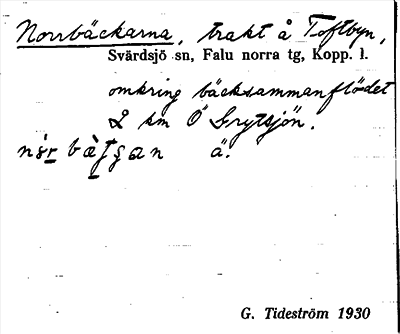 Norrbäckarna, trakt å Toftbyn,
Svärdsjö sn, Falu norra tg, Kopp. l.
omkring bäcksammanflödet
2 km Ö Grytsjön.
ä.
G. Tideström 1930